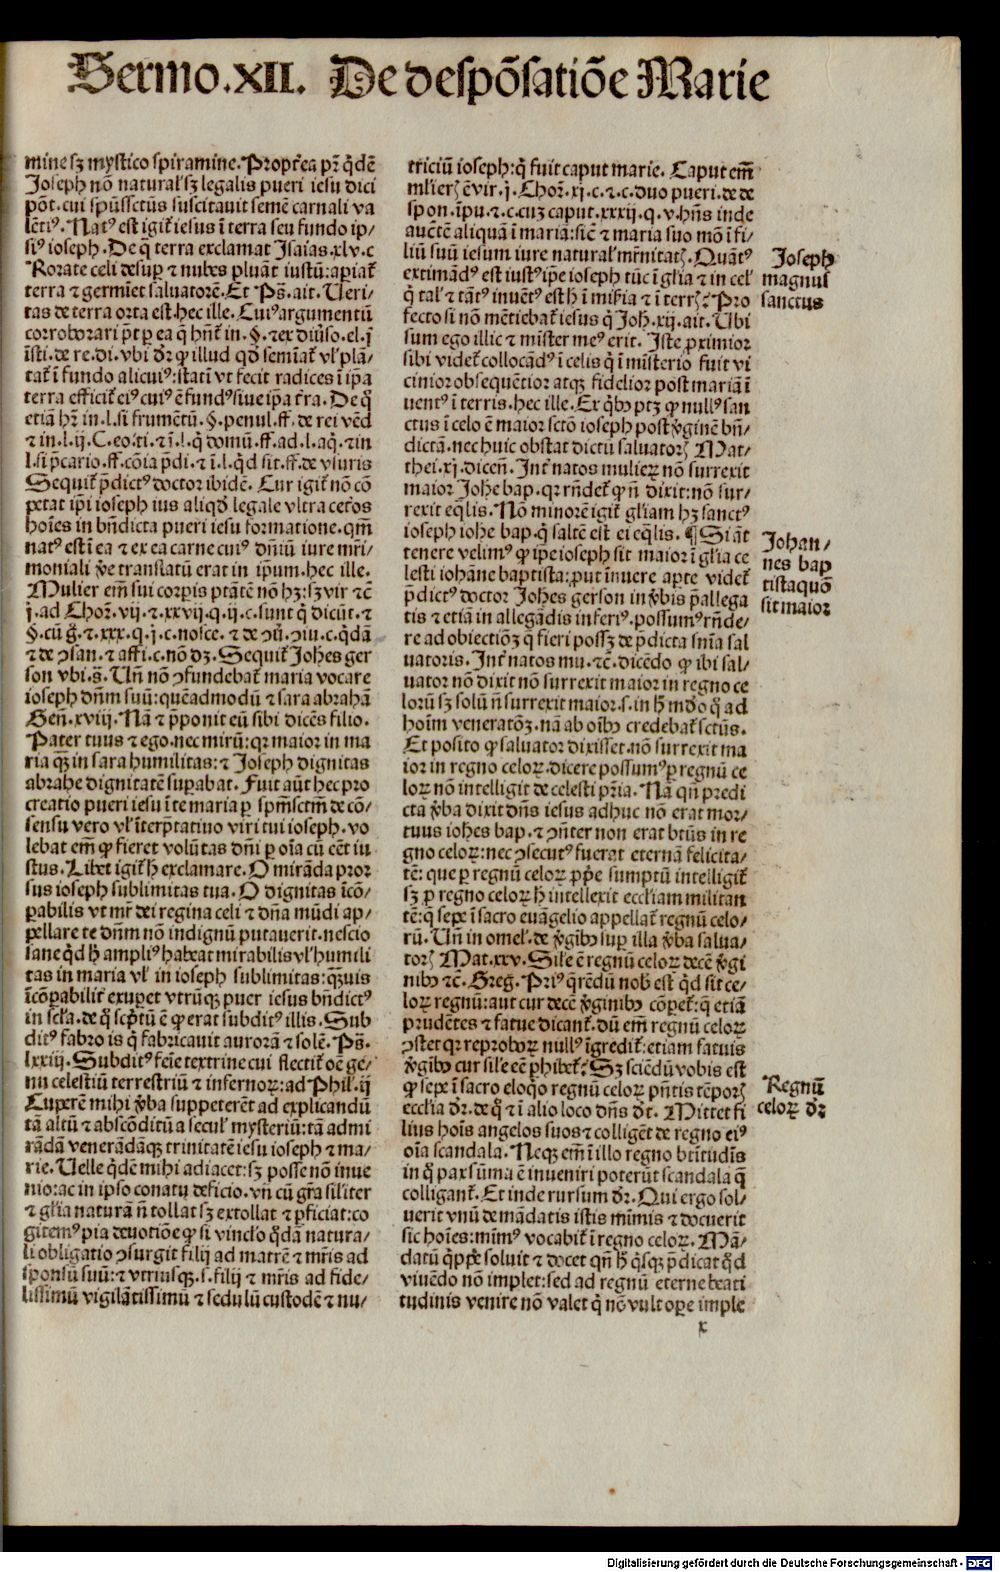 Sermo.XII. De despōsatiōe Marie
mine sꝫ mystico spiramine. Propt̄ea pr̄ q̇dē
Joseph nō natural' sꝫ legalis pueri iesu dici
pōt. cui spūssctūs suscitauit semē carnali va
lēti⁹. Nat⁹ est igit̄ iesus ī terra seu fundo ip/
si⁹ ioseph. De q̄ terra exclamat Isaias.xlv.c
Rorate celi desuꝑ ⁊ nubes pluāt iustū: aꝑiat̄
terra ⁊ germīet saluatorē. Et Ps̄. ait. Ueri-
tas de terra orta est. hec ille. Cui⁹ argumentū
corroborari pōt ꝑ ea q̄ hn̄t̄ in. §. ⁊ ex diūso. el. j
īsti. de re. di. vbi dr̄ ꝙ illud qd̄ semīat̄ vl' plā-
tat̄ ī fundo alicui⁹: statī vt fecit radices ī ip̄a
terra efficit̄ ei⁹ cui⁹ ē fund⁹ siue ip̄a t̄ra. De q̊
etiā hr̄ in. l. si frumētū. §. penul. ff. de rei vēd
⁊ in. l. ij. C. eo. ti. ⁊ ī. l. q̇ domū. ff. ad. l. aq̄. ⁊ in
l. si p̄cario. ff. cōia p̄di. ⁊ ī. l. q̇d sit. ff. de vsuris
Sequit̄ p̄dict⁹ doctor ibidē. Cur igit̄ nō cō
petat ip̄i ioseph ius aliqd̄ legale vltra cet̄os
hoīes in bn̄dicta pueri iesu formatione. qm̄
nat⁹ est ī ea ⁊ ex ea carne cui⁹ dn̄iū iure mr̄i/
moniali v̄e translatū erat in ip̄um. hec ille.
Mulier em̄ sui corꝑis ptātē nō hꝫ: sꝫ vir ⁊c̄
j. ad Chor̄. vij. ⁊ .xxvij. q. ij. c. sunt q̇ dicūt. ⁊
§. cū g̊. ⁊ .xxx. q. j. c. nosce. ⁊ de ꝯū. ꝯiu. c. q̇dā
⁊ de ꝯsan. ⁊ affi. c. nō dꝫ. Sequit̄ Joh̄es ger
son vbi. s̄. Un̄ nō ꝯfundebat̄ maria vocare
ioseph dn̄m suū: quēadmodū ⁊ sara abrahā
Gen̄. xviij. Nā ⁊ p̄ponit eū sibi dicēs filio.
Pater tuus ⁊ ego. nec mirū: qr maior in ma
ria qꝫ in sara humilitas: ⁊ Joseph dignitas
abrahe dignitatē suꝑabat. Fuit aūt hec pro
creatio pueri iesu ī te maria ꝑ spm̄sctm̄ de cō/
sensu vero vl' īterp̄tatiuo viri tui ioseph. vo
lebat em̄ ꝙ fieret volūtas dn̄i ꝑ oīa cū eēt iu
stus. Libet igit̄ h̄ exclamare. O mirāda pror
sus ioseph sublimitas tua. O dignitas īcō/
ꝑabilis vt mr̄ dei regina celi ⁊ dn̄a mūdi ap/
pellare te dn̄m nō indignū putauerit. nescio
sane q̇d h̄ ampli⁹ habeat mirabilis vl' humili
tas in maria vl' in ioseph sublimitas: qꝫuis
īcōꝑabilit̄ exuꝑet vtrūqꝫ puer iesus bn̄dict⁹
in scl'a. de q̊ scp̄tū ē ꝙ erat subdit⁹ illis. Sub
dit⁹ fabro is q̇ fabricauit aurorā ⁊ solē. Ps̄.
lxxiij. Subdit⁹ feīe textrine cui flectit̄ oē ge/
nu celestiū terrestriū ⁊ infernoꝝ: ad Phil'. ij
Cuperē mihi v̄ba suppeterēt ad explicandū
tā altū ⁊ abscōditū a secul' mysteriū: tā admi
rādā venerādāqꝫ trinitatē iesu ioseph ⁊ ma/
rie. Uelle q̇dē mihi adiacet: sꝫ posse nō inue
nio: ac in ipso conatu deficio. vn̄ cū gr̄a sil'iter
⁊ gl'ia naturā n̄ tollat sꝫ extollat ⁊ ꝑficiat: co
gitem⁹ pia deuotiōe ꝙ si vincl'o q̊dā natura/
li obligatio ꝯsurgit filij ad matrē ⁊ mr̄is ad
sponsū suū: ⁊ vtriusqꝫ. s. filij ⁊ mr̄is ad fide/
lissimū vigilātissimū ⁊ sedulū custodē ⁊ nu/
triciū ioseph: q̇ fuit caput marie. Caput em̄
ml'ieꝝ ē vir. j. Chor̄. xj. c. ⁊. c. duo pueri. de de
spon. īpu. ⁊. c. cuꝫ caput. xxxij. q. v. hn̄s inde
auc̄tē aliquā ī mariā: sic̄ ⁊ maria suo mō ī fi/
liū suū iesum iure natural' mr̄nitatꝭ. Quāt⁹
extimād⁹ est iust⁹ ip̄e ioseph tūc ī gl'ia ⁊ in cel'
q̇ tal' ⁊ tāt⁹ inuēt⁹ est h̄ ī mis̄ia ⁊ ī terrꝭ? Pro
fecto si nō mētiebat̄ iesus q̇ Joh̄. xij. ait. Ubi
sum ego illic ⁊ mīster me⁹ erit. Iste ꝓximior
sibi videt̄ collocād⁹ ī celis q̇ ī misterio fuit vi
cinior obsequētior atqꝫ fidelior post mariā ī
uent⁹ ī terris. hec ille. Ex q̇bꝰ ptꝫ ꝙ null⁹ san
ctus ī celo ē maior sctō ioseph post v̄ginē bn̄/
dictā. nec huic obstat dictū saluatorꝭ Mat/
thei. xj. dicen̄. Int̄ natos mulieꝝ nō surrexit
maior Joh̄e bap. qr rn̄det̄ ꝙ n̄ dixit: nō sur/
rexit eq̄lis. Nō minorē igit̄ gl'iam hꝫ sanct⁹
ioseph ioh̄e bap. q̇ saltē est ei eq̄lis. ¶ Si āt
tenere velim⁹ ꝙ ip̄e ioseph sit maior ī gl'ia ce
lesti iohāne baptista: put īnuere aꝑte videt̄
p̄dict⁹ doctor Joh̄es gerson in v̄bis p̄allega
tis ⁊ etiā in allegādis inferi⁹. possum⁹ rn̄de/
re ad obiectiōꝫ q̇ fieri possꝫ de p̄dicta sn̄ia sal
uatoris. Int̄ natos mu. ⁊c̄. dicēdo ꝙ ibi sal/
uator nō dixit nō surrexit maior in regno ce
lorū sꝫ solū n̄ surrexit maior. s. in h̄ mūdo q̊ ad
hoīm veneratōꝫ. nā ab oībꝰ credebat̄ sctūs.
Et posito ꝙ saluator dixisset. nō surrexit ma
ior in regno celoꝝ. dicere possum⁹ ꝑ regnū ce
loꝝ nō intelligit de celesti pr̄ia. Nā qn̄ predi
cta v̄ba dixit dn̄s iesus adhuc nō erat mor/
tuus ioh̄es bap. ⁊ ꝯn̄ter non erat btūs in re
gno celoꝝ: nec ꝯsecut⁹ fuerat eternā felicita/
tē: que ꝑ regnū celoꝝ ꝓp̄e sumptū intelligit̄
sꝫ ꝑ regno celoꝝ h̄ intellexit eccl'iam militan
tē: q̄ sepe ī sacro euāgelio appellat̄ regnū celo/
rū. Un̄ in omel'. de v̄gībꝰ suꝑ illa v̄ba salua/
torꝭ Mat. xxv. Sil'e ē regnū celoꝝ decē v̄gi
nibꝰ ⁊c̄. Greg̊. Pri⁹ q̄rēdū nob̄ est q̇d sit ce/
loꝝ regnū: aut cur decē v̄ginibꝰ cōꝑet̄: q̄ etiā
prudētes ⁊ fatue dicant̄. dū em̄ regnū celoꝝ
ꝯstet qr reproboꝝ null⁹ īgredit̄: etiam fatuis
v̄gībꝰ cur sil'e eē ꝑhibet̄? Sꝫ sciēdū vobis est
ꝙ sepe ī sacro eloq̇o regnū celoꝝ pn̄tis tēporꝭ
eccl'ia dr̄. de q̊ ⁊ ī alio loco dn̄s d̄t. Mittet fi
lius hoīs angelos suos ⁊ colligēt de regno ei⁹
oīa scandala. Neqꝫ em̄ ī illo regno btītudīs
in q̊ pax sūma ē inueniri poterūt scandala q̄
colligant̄. Et inde rursum dr̄. Qui ergo sol/
uerit vnū de mādatis istis mīmis ⁊ docuerit
sic hoīes: mīm⁹ vocabit̄ ī regno celoꝝ. Mā/
datū q̇ppe soluit ⁊ docet qn̄ h̄ q̇sqꝫ p̄dicat q̊d
viuēdo nō implet: sed ad regnū eterne beati
tudinis venire nō valet q̇ nō vult oꝑe imple
x
Joseph
magnus
sanctus
Johan/
nes bap
tista quō
sit maior
Regnū
celoꝝ dr̄
Digitalisierung gefördert durch die Deutsche Forschungsgemeinschaft - DFG